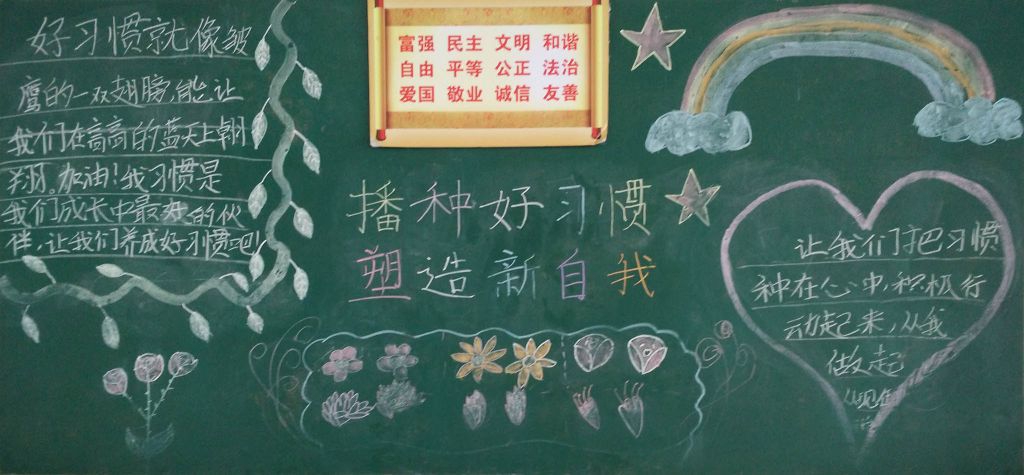 好习惯就像皱
鹰的一双翅膀,能让
我们在高高的蓝天上朝
翔。加油!我习惯是
我们成长中最好的伙
伴,让我们养成好习惯吧!
富强 民主 文明 和谐
自由 平等 公正 法治
爱国 敬业 诚信 友善
播种好习惯
塑造新自我
让我们把习惯
种在心中,积极行
动起来,从我
做起
从现在